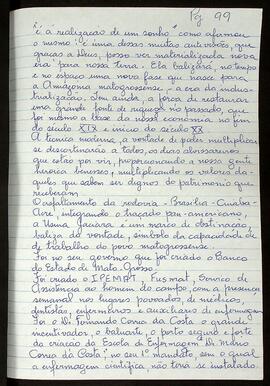 Pg 99
"e' a realização de um sonho" como afirmou
o mesmo: é uma dessas muitas auto visões, que
graças a Deus, posso ver materializada nova
era para nossa terra. Ela balizará, no tempo
e no espaço uma nova fase que nasce para
a Amazonia matogrossense - a era da indus-
trialização. Sem duvida, a força de restaurar
uma grande fonte de riqueza no passado, que
foi mesmo a base da nossa economia no fim
do século XIX e início do século XX
A técnica moderna, a vontade de poder multiplicar
se descortinarão a todos, os dias alvissareiros
que estão por vir, proporcionando a nossa gente
heroica benesses, multiplicando os valores da-
queles que sabem ser dignos do patrimonio que
receberam.
O asfaltamento da rodovia - Brasilia - Cuiaba-
Acre, integrando o traçado pan-americano,
a Usina Jaciara é um marco de obstinação,
baliza da vontade, simbolo da capacidade
de trabalho do povo matogrossense.
Foi no seu governo que foi criado o Banco
do Estado de Mato Grosso.
Foi criado o IPEMAT, Fusmat, Serviço de
Assistência ao homem do campo, com a presença
semanal nos lugares povoados, de médicos,
dentistas, enfermeiros e auxiliares de enfermagem
Foi o Dr. Fernando Correa da Costa o grande
incentivador, o baluarte, o porto seguro e forte
da criação da Escola de Enfermagem "Dr Mario
Correa da Costa", no seu 1º mandato, sem o qual
a enfermagem cientifica, não teria se instalado